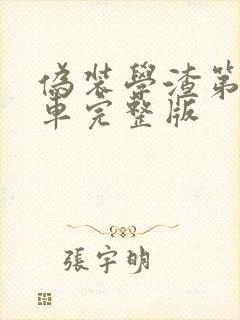 偽裝學渣第
車完整版
張宇明